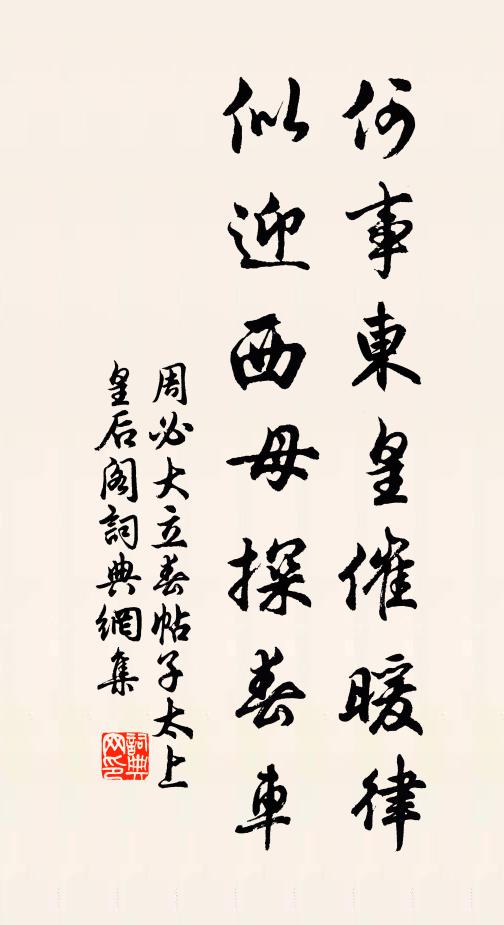 何事東皇催暖律
似迎西母探春車
周必大立春帖子太上
皇后閣詞典網集
詞典网印